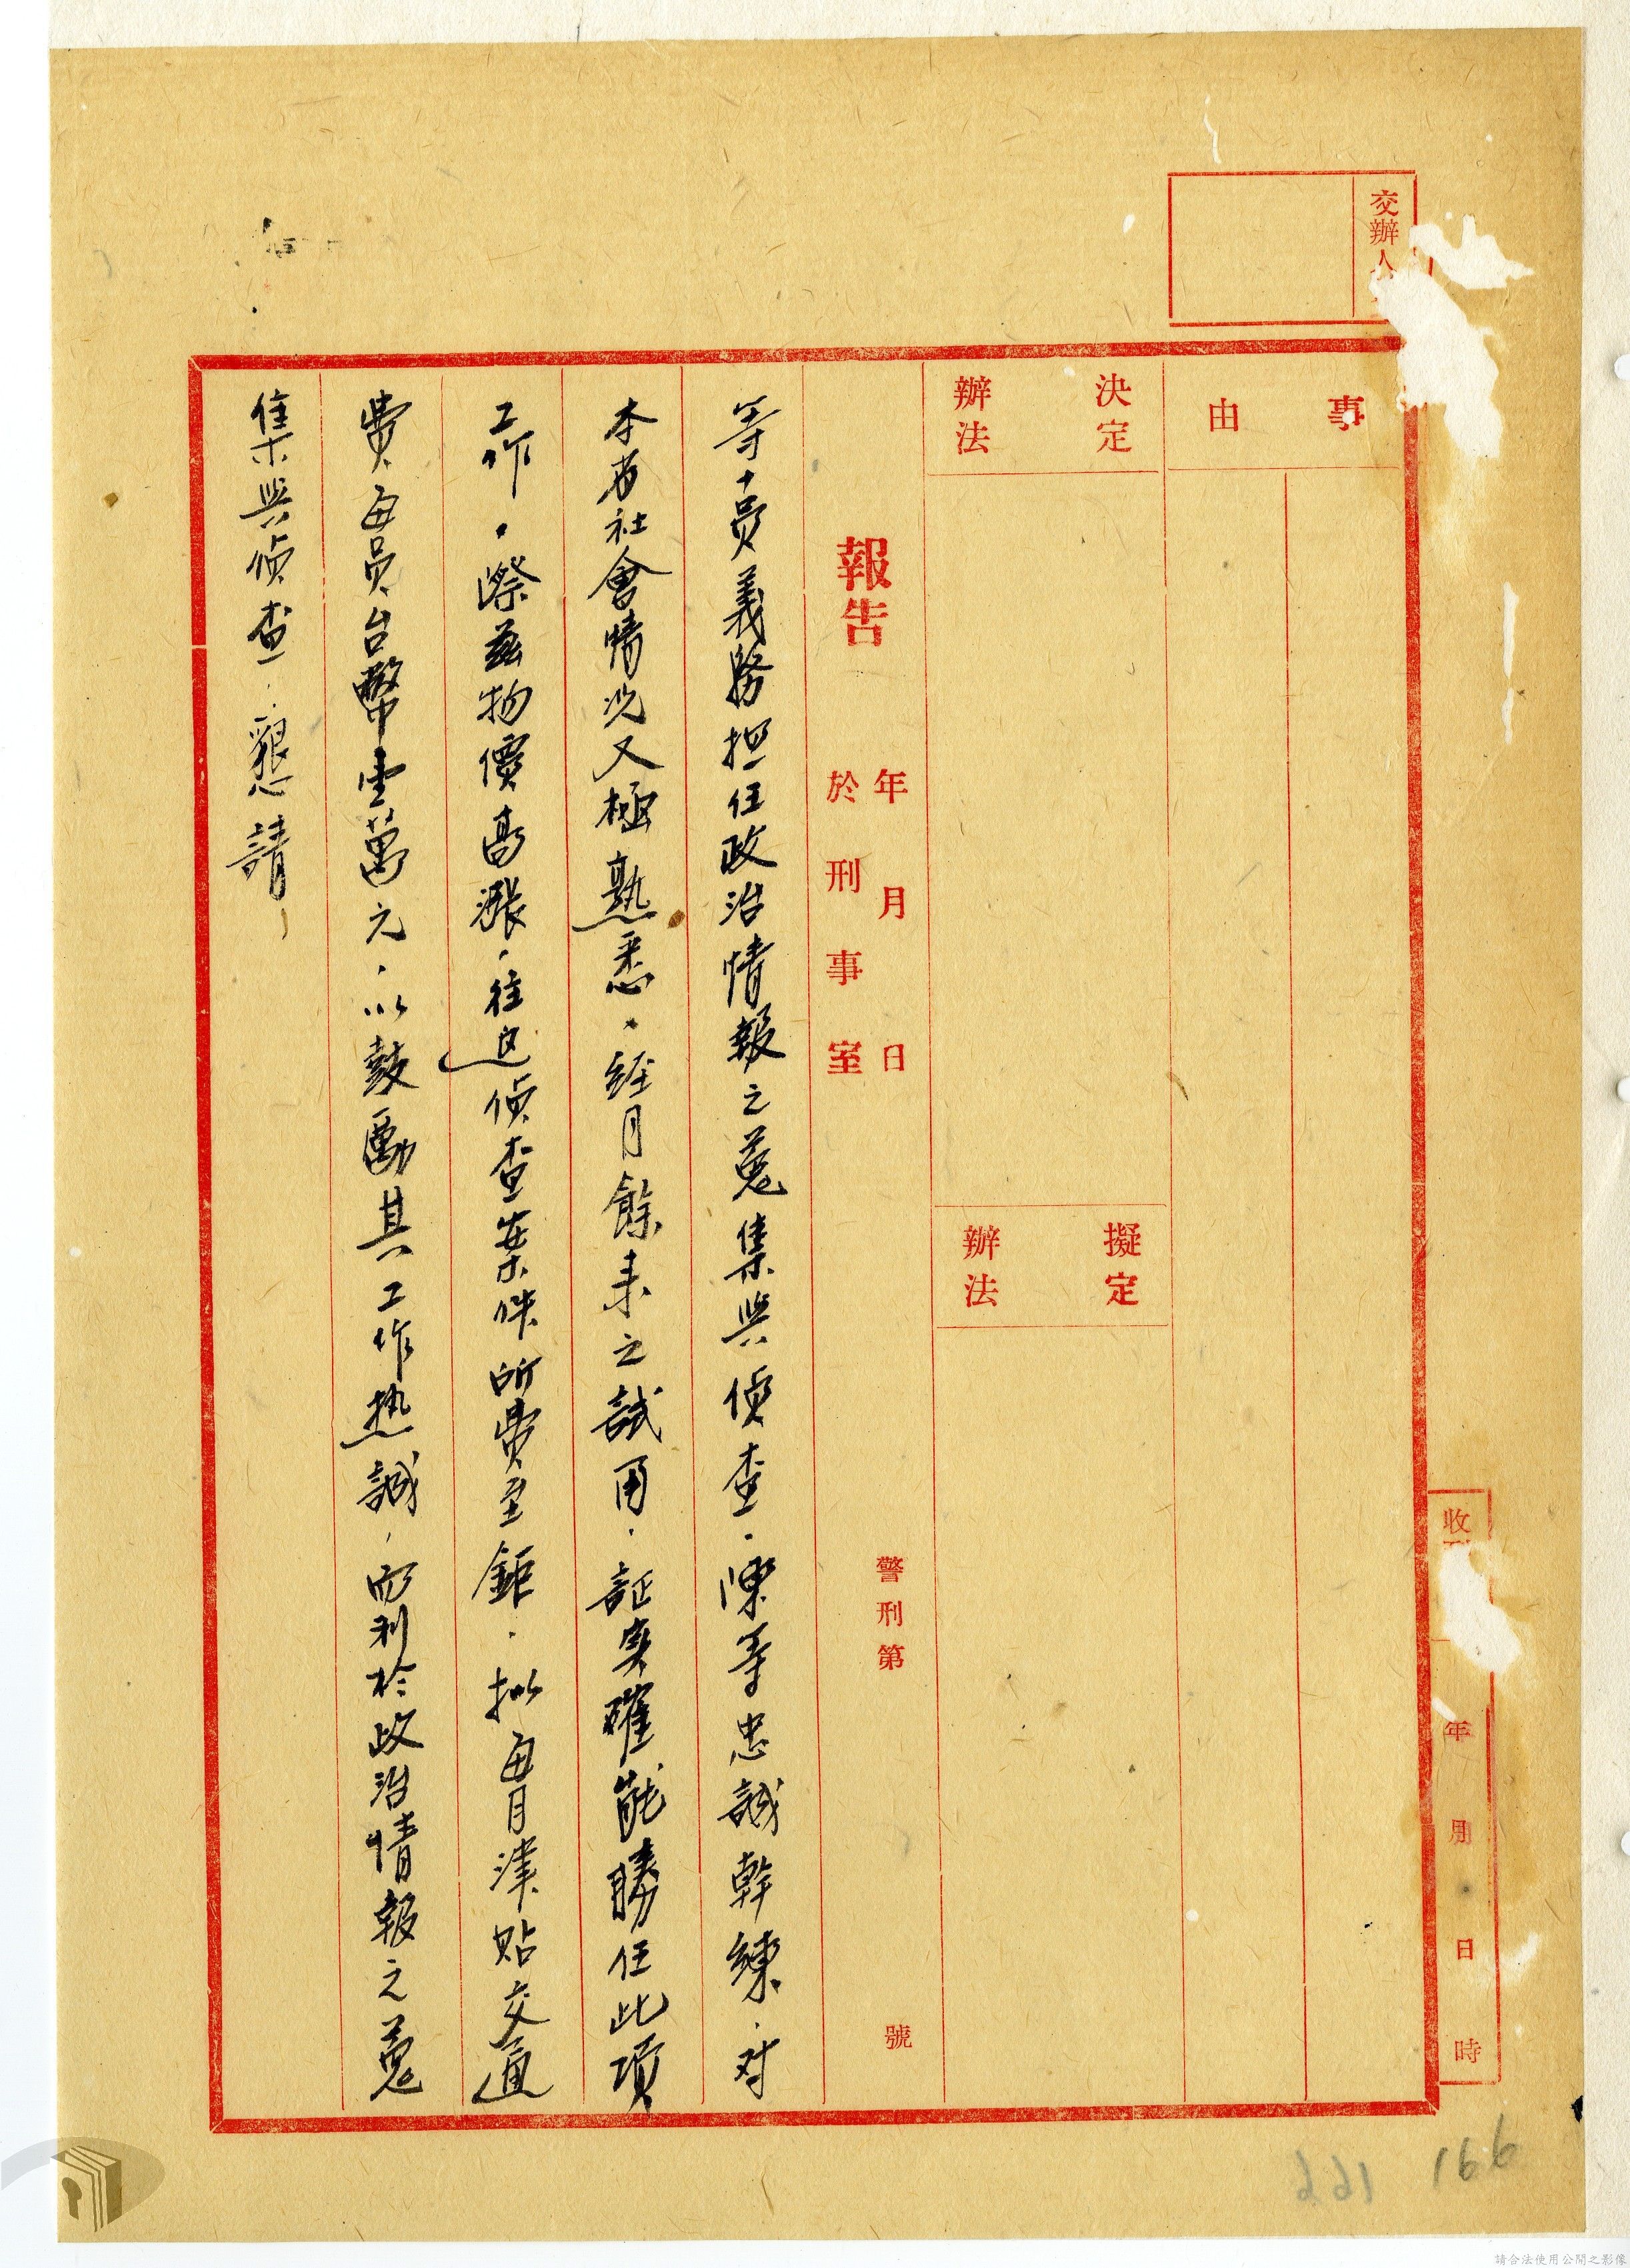 交辦人
事由
決定辦法
擬定辦法
收
年月日時
報告
年月日
於刑事室
警刑第號
等十員義務担任政治情報之蒐集與偵查．陳等忠誠幹練．对
本省社會情況又極熟悉．經月餘来之試用．証实確能勝任此項
工作．際茲物價高漲．往返偵查案件所費至鉅．拟每月津貼交通
費每員台幣壹萬元．以鼓勵其工作热誠．而利於政治情報之蒐
集與偵查．懇請
166
請合法使用公開之影像